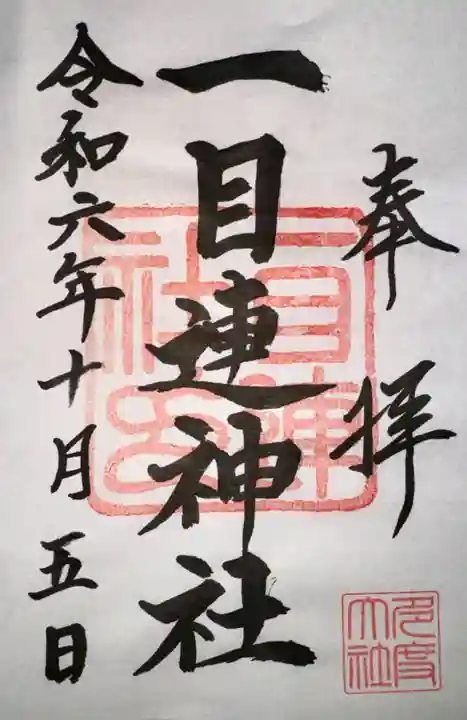 奉拝
一目連神社
令和六年十月五日
多度大社